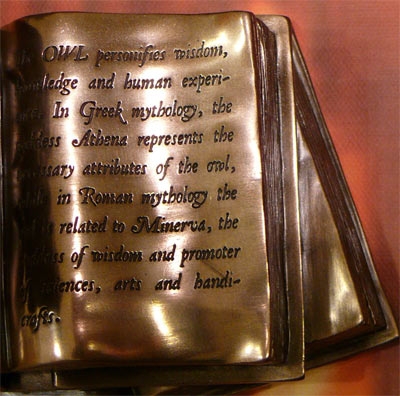 OWL personifies wisdom,
knowledge and human experi-
In Greek mythology, the
goddess Athena represents the
necessary attributes of the owl,
in Roman mythology the
is related to Minerva, the
goddess of wisdom and promoter
of sciences, arts and handi-
crafts.